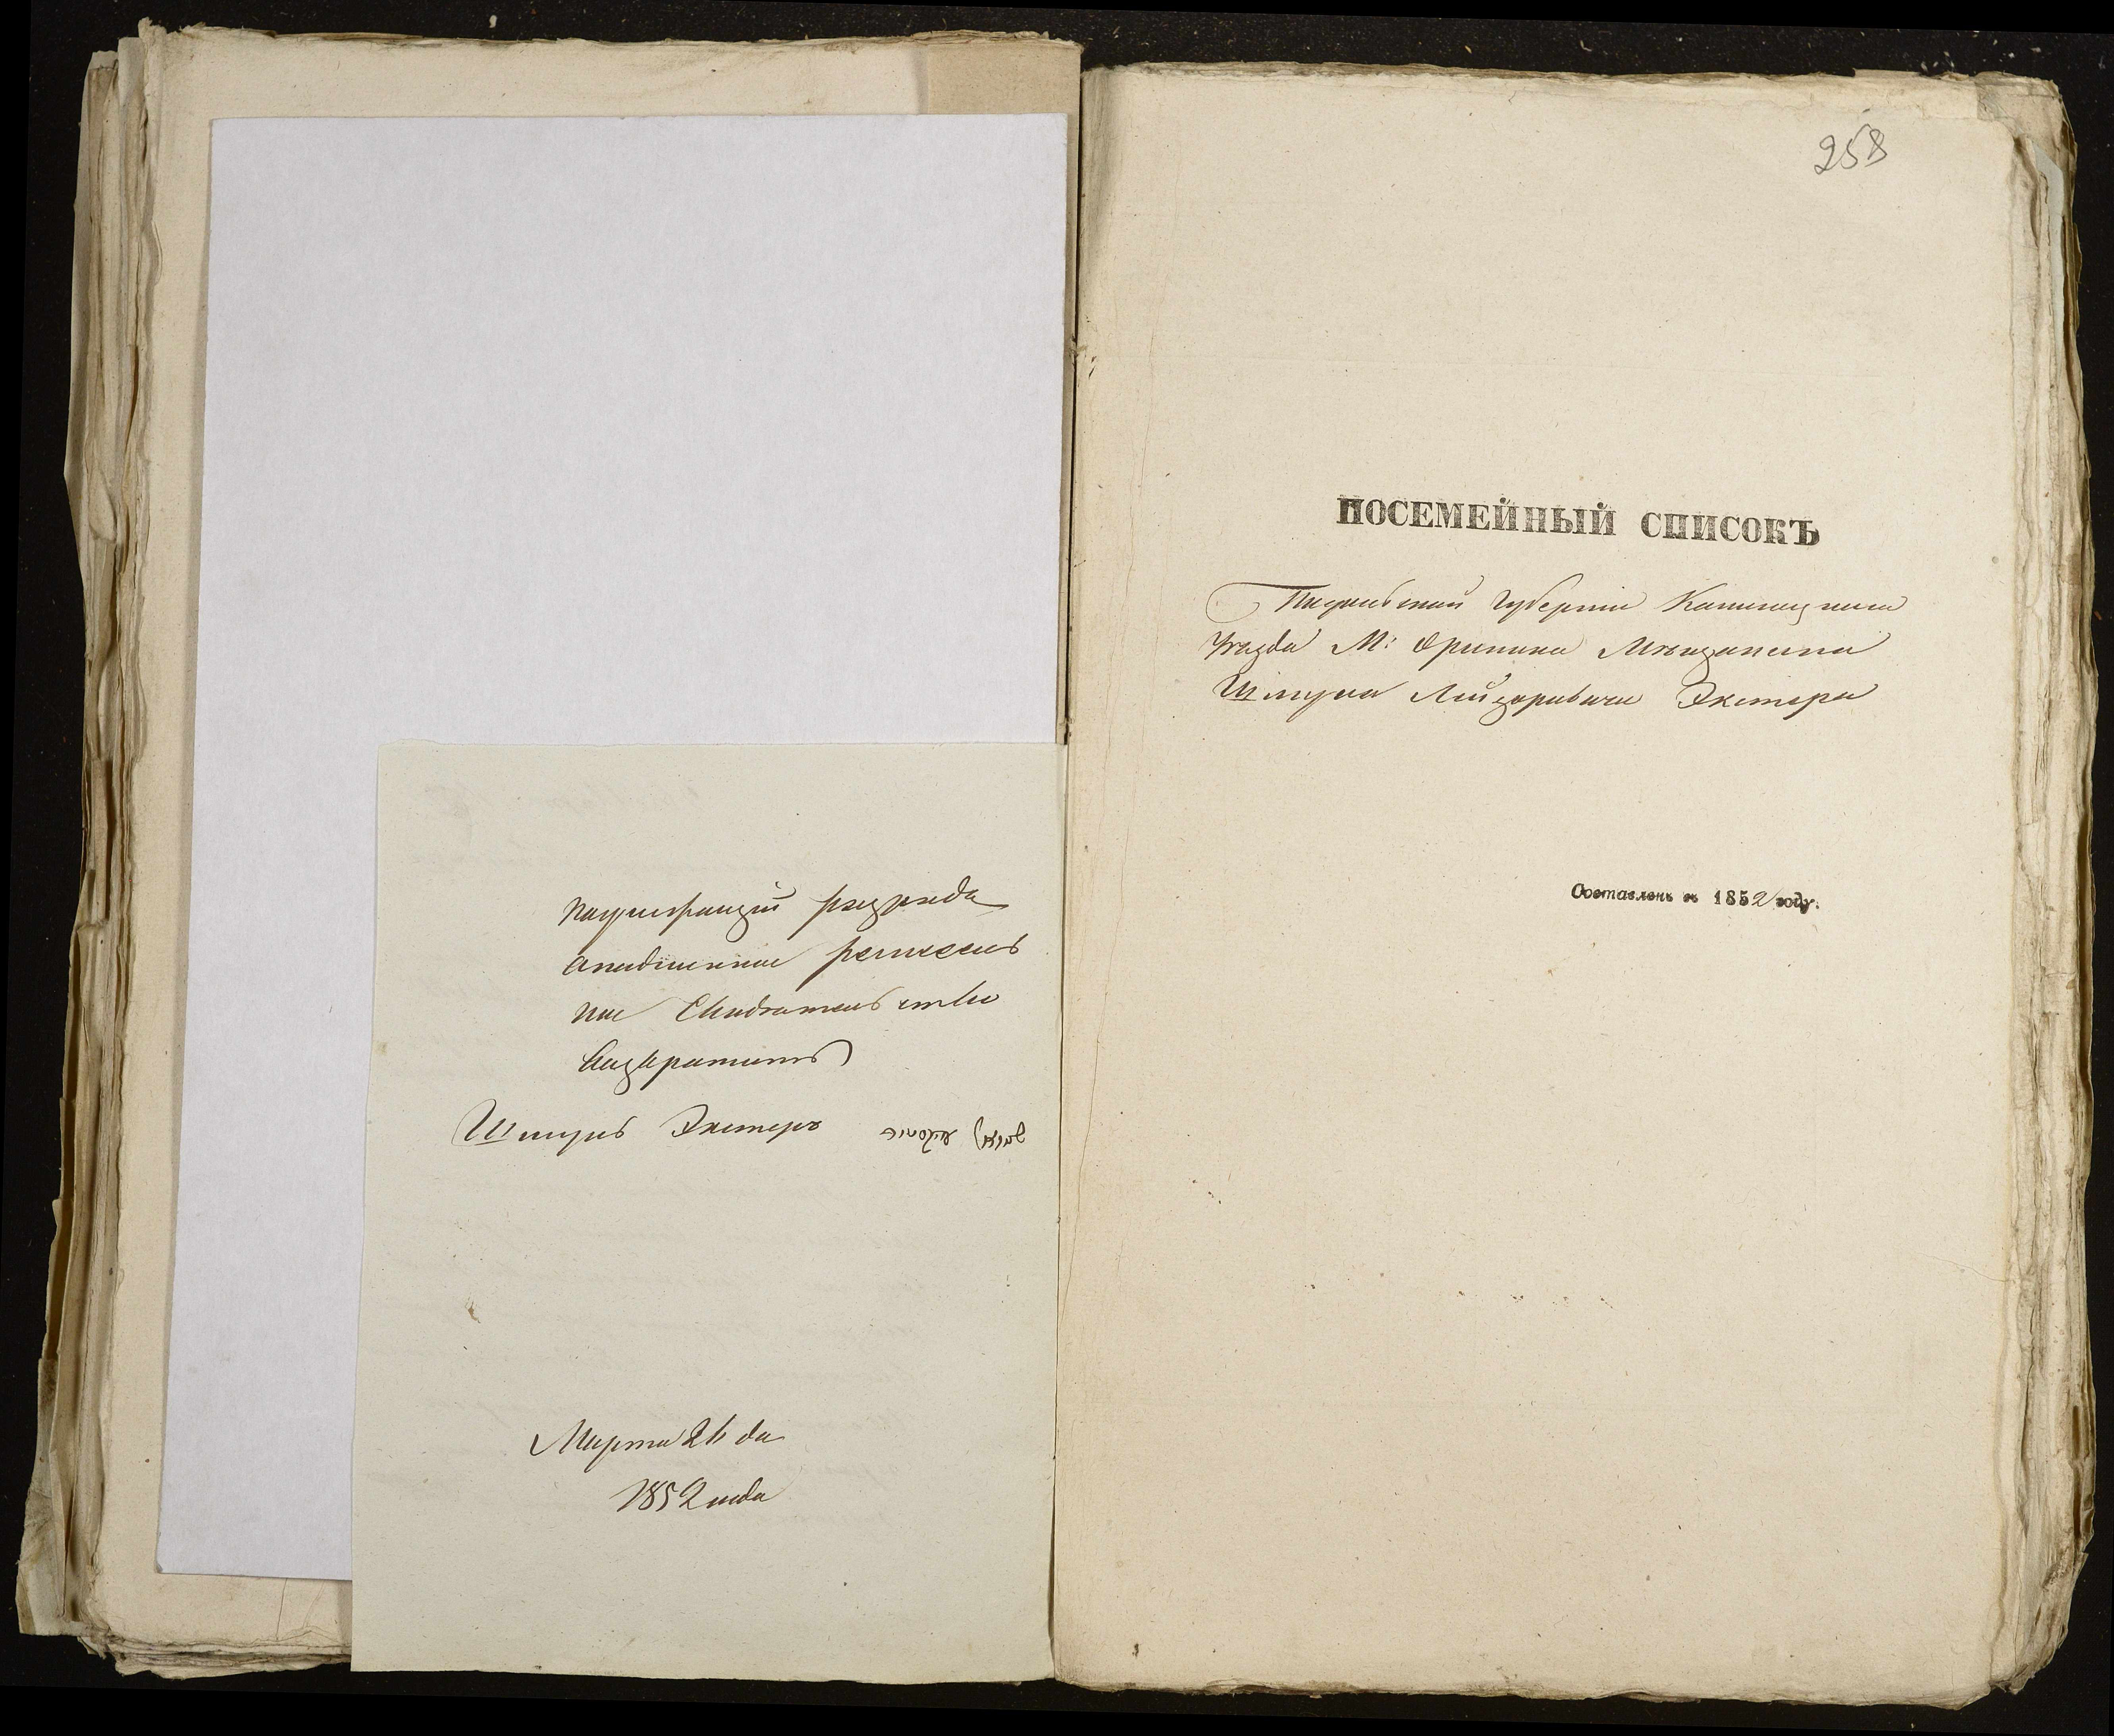 разряда
Свидетельство
возвратить
Шмуль Экстеръ
Марта 26 дня
1852 года
258
ПОСЕМЕЙНЫЙ СПИСОКЪ
Подольской Губерніи Каменецкаго
уѣзда М: Оринина Мѣщанина
Шмуля Лейзоровича Экстера
Составленъ въ 1852 году.